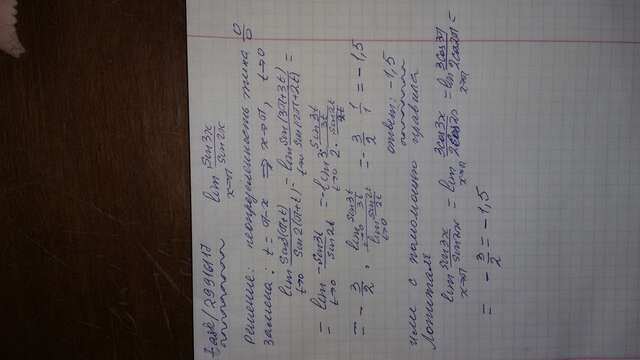 task/29916117 lim x→π sin3x/sin2x
Решение: неопределенность типа 0/0
Замена: t = π-x ⇒ x→π, t→0
lim t→0 sin3(π+t)/sin2(π+t) = lim t→0 sin(3π+3t)/sin(2π+2t) =
= lim t→0 -sin3t/sin2t = -lim t→0 3·sin3t/3t / 2·sin2t/2t
= -3/2 · lim t→0 sin3t/3t / lim t→0 sin2t/2t = -3/2 · 1/1 = -1,5
ответ: -1,5
или с помощью правила
Лопиталя
lim x→π sin3x/sin2x = lim x→π 3cos3x/2cos2x = lim x→π 3cos3π/2cos2π =
= -3/2 = -1,5